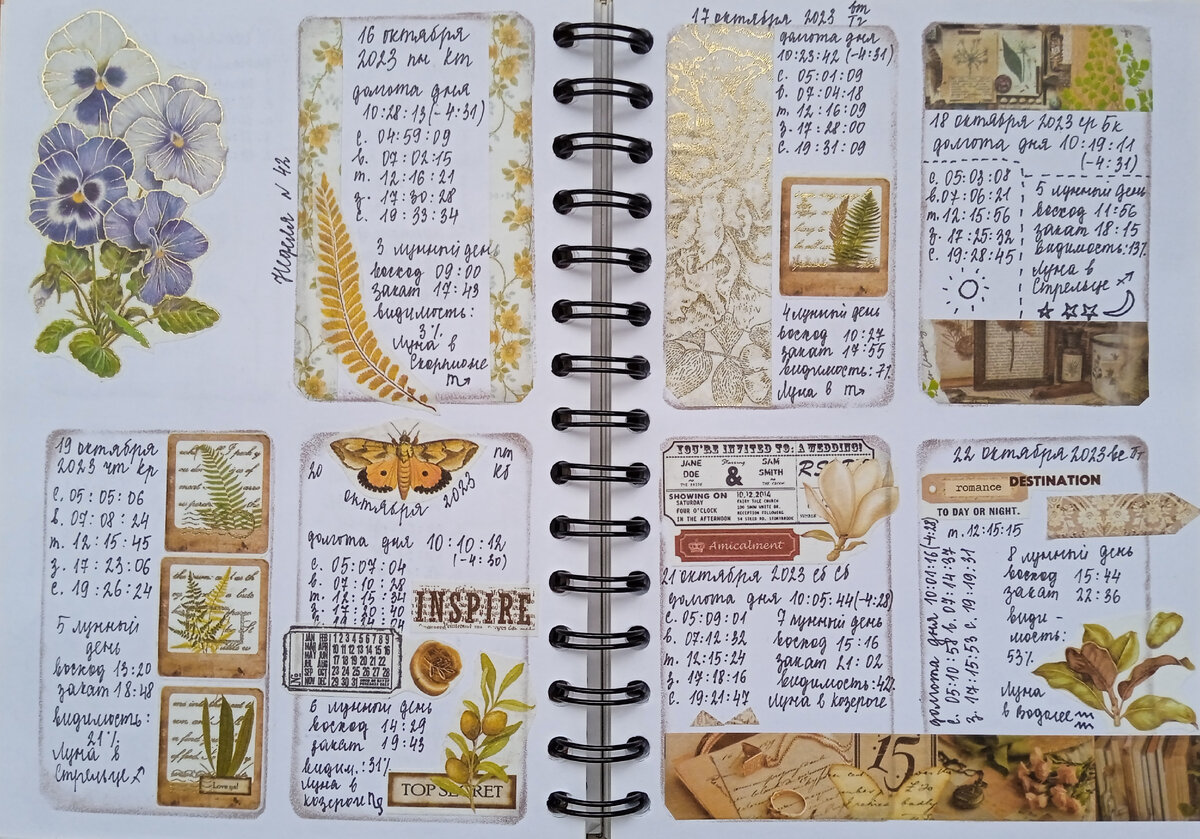 Неделя № 42
16 октября
2023 пн. кт
долгота дня
10:28:13(-4:31)
с. 04:59:09
в. 07:02:15
т. 12:16:21
з. 17:30:28
с. 19:33:34
3 лунный день
восход 09:00
закат 17:43
видимость:
3%
Луна в
Скорпионе
17 октября 2023 вт
Тг
долгота дня
10:23:42 (-4:31)
с. 05:01:09
в. 07:04:18
т. 12:16:09
з. 17:28:00
с. 19:31:09
4 лунный день
восход 10:27
закат 17:55
видимость: 7%
Луна в
18 октября 2023 ср Бк
долгота дня 10:19:11
(-4:31)
с. 05:03:08
в. 07:06:21
т. 12:15:56
з. 17:25:32
с. 19:28:45
5 лунный день
восход 11:56
закат 18:15
видимость: 13%
Луна в
Стрельце
19 октября
2023 чт кр
с. 05:05:06
в. 07:08:24
т. 12:15:45
з. 17:23:06
с. 19:26:24
5 лунный
день
восход 13:20
закат 18:48
видимость:
21%
Луна в
Стрельце
Love ya!
20
октября 2023
пт
Кб
долгота дня 10:10:12
(-4:30)
с. 05:07:04
в. 07:10:28
т. 12:15:34
з. 17:20:40
INSPIRE
6 лунный день
восход 14:29
закат 19:43
видим.: 31%
Луна в
козероге
TOP SECRET
YOU'RE INVITED TO: A WEDDING!
JANE
DOE
&
SAM
SMITH
SHOWING ON
SATURDAY
FOUR O'CLOCK
IN THE AFTERNOON
10.12.2014
Amicalment
21 октября 2023 сб Сб
долгота дня 10:05:44(-4:28)
с. 05:09:01
в. 07:12:32
т. 12:15:24
з. 17:18:16
с. 19:21:47
7 лунный день
восход 15:16
закат 21:02
видимость: 42%
Луна в козероге
15
22 октября 2023 вс Пт
romance
DESTINATION
TO DAY OR NIGHT.
долгота дня 10:01:16(-4:28)
в. 05:10:58 в. 07:14:37
з. 17:15:53 с. 19:19:31
т. 12:15:15
8 лунный день
восход 15:44
закат 22:36
види-
мость:
53%
Луна
в Водолее